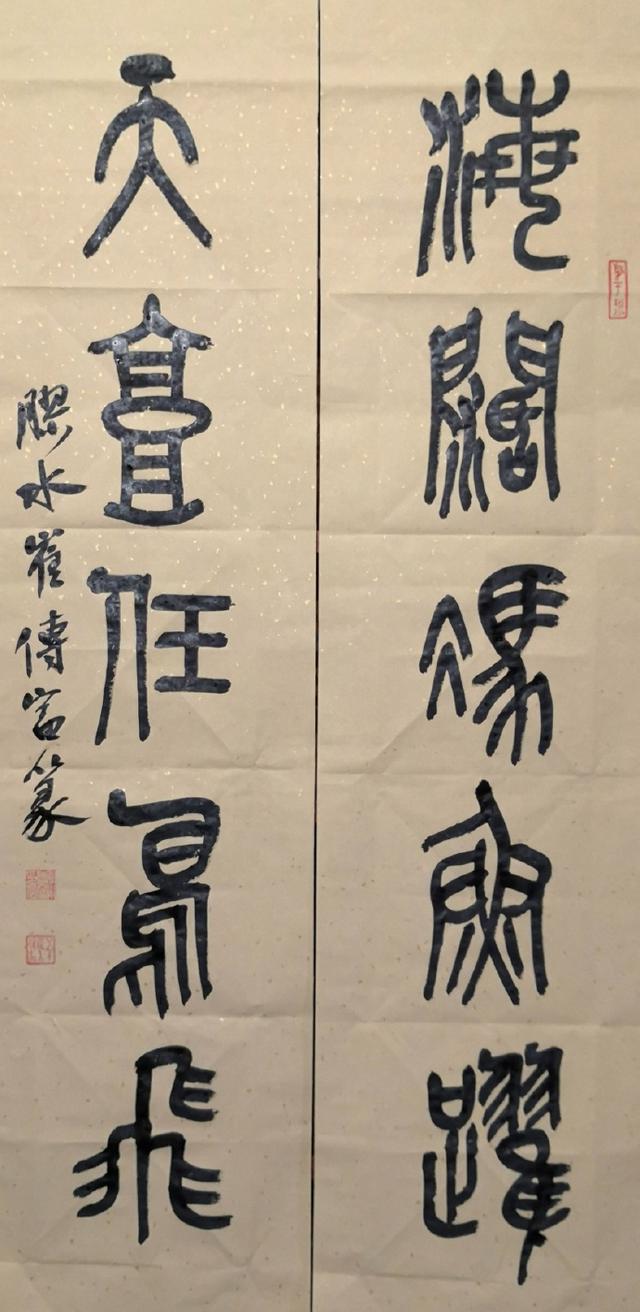 海闊馮魚躍
天高任鳥飛
膠水崔傳富篆